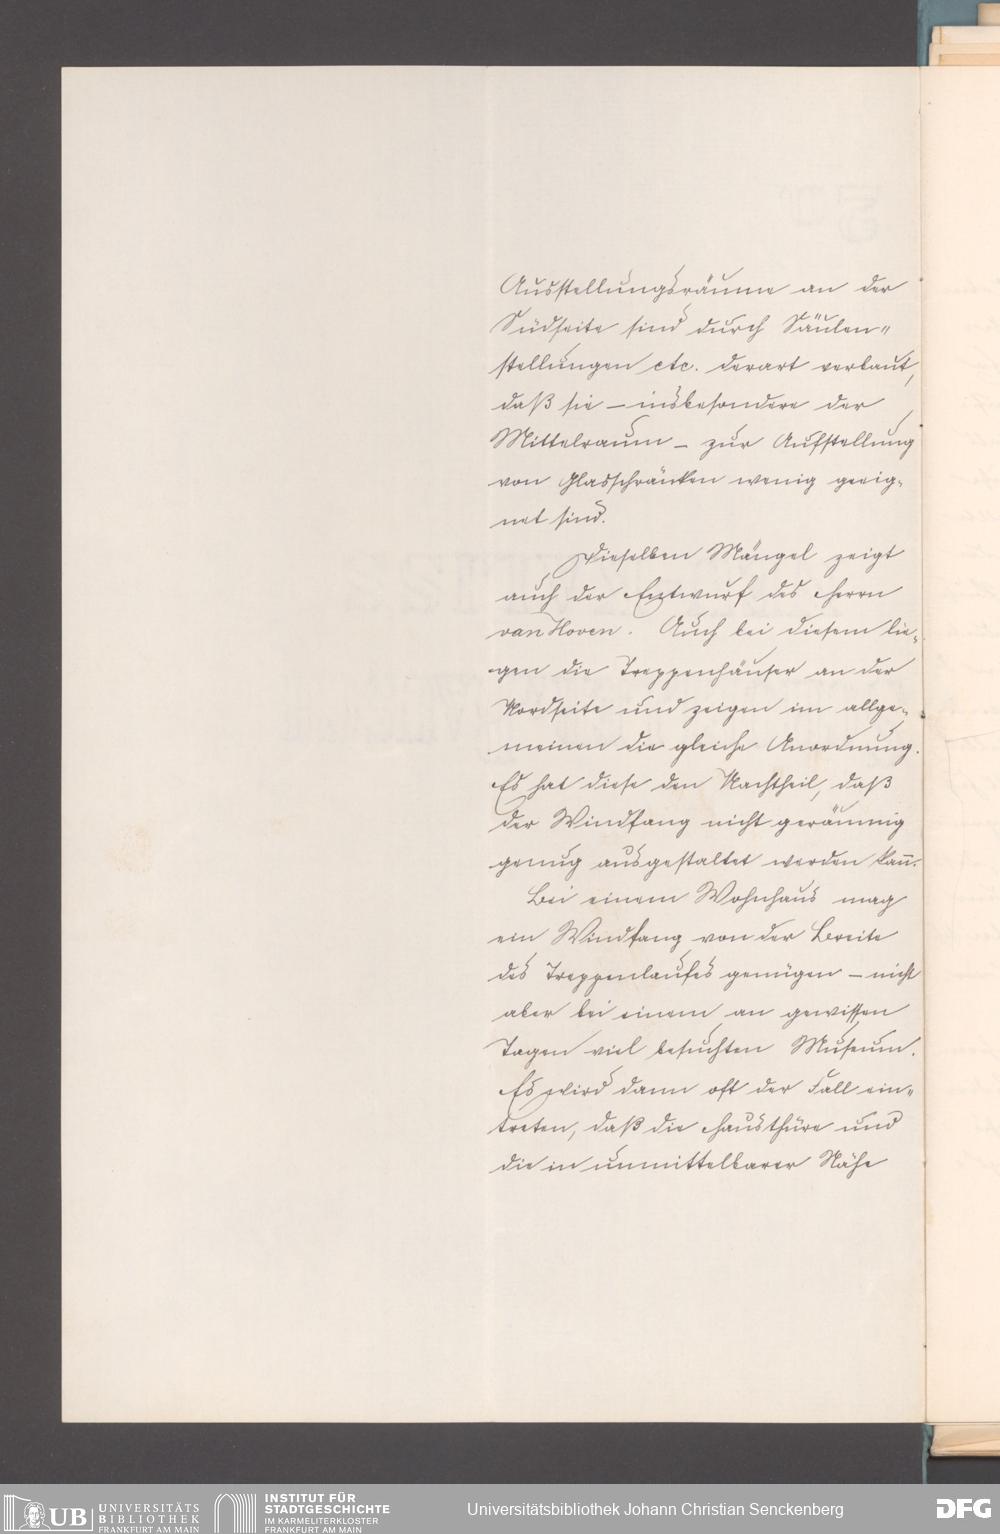 Ausstellungsräume an der
Südseite sind durch Säulen-
stellungen etc. derart verbaut,
daß sie – insbesondere der
Mittelraum – zur Aufstellung
von Glasschränken wenig geeig-
net sind.
Dieselben Mängel zeigt
auch der Entwurf des Herrn
van Hoven. Auch bei diesem lie-
gen die Treppenhäuser an der
Nordseite und zeigen im allge-
meinen die gleiche Anordnung.
Es hat diese den Nachtheil, daß
der Windfang nicht geräumig
genug ausgestaltet werden kann.
Bei einem Wohnhaus mag
ein Windfang von der Breite
des Treppenlaufes genügen – nicht
aber bei einem an gewissen
Tagen viel besuchten Museum.
Es wird dann oft der Fall ein-
treten, daß die Hausthüre und
die in unmittelbarer Nähe
UB UNIVERSITÄTS
BIBLIOTHEK
FRANKFURT AM MAIN
INSTITUT FÜR
STADTGESCHICHTE
IM KARMELITERKLOSTER
FRANKFURT AM MAIN
Universitätsbibliothek Johann Christian Senckenberg
DFG